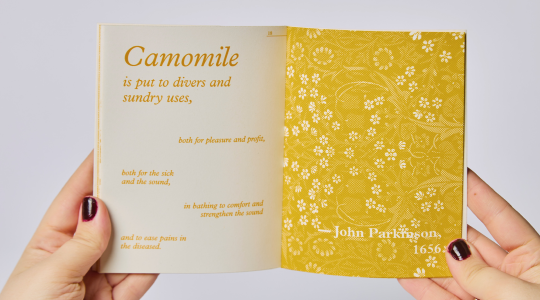 Camomile
is put to divers and
sundry uses,
both for pleasure and profit,
both for the sick
and the sound,
in bathing to comfort and
strengthen the sound
and to ease pains in
the diseased.
— John Parkinson,
1656.